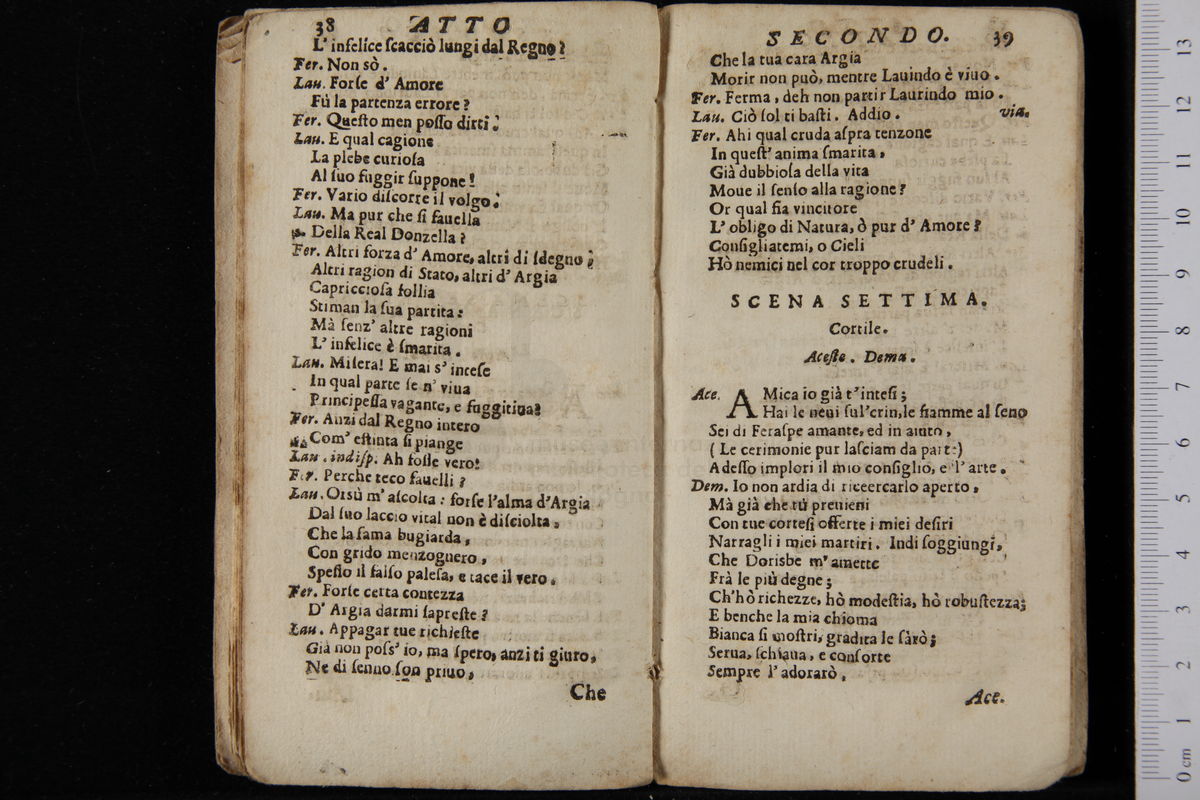 38 ATTO
L' infelice ſcacciò lungi dal Regno?
Fer. Non sò.
Lau. Forſe d' Amore
Fù la partenza errore?
Fer. Queſto men poſſo dirti.
Lau. E qual cagione
La plebe curioſa
Al ſuo fuggir ſuppone!
Fer. Vario diſcorre il volgo.
Lau. Ma pur che ſi fauella
Della Real Donzella?
Fer. Altri forza d' Amore, altri di ſdegno;
Altri ragion di Stato, altri d' Argia
Capriccioſa follia
Stiman la ſua partita:
Mà ſenz' altre ragioni
L' infelice è ſmarita.
Lau. Miſera! E mai s' inteſe
In qual parte ſe n' viua
Principeſſa vagante, e fuggitiua?
Fer. Anzi dal Regno intero
Com' eſtinta ſi piange
Lau. indiſp. Ah foſſe vero!
Fer. Perche teco fauelli?
Lau. Orsù m' aſcolta: forſe l'alma d'Argia
Dal ſuo laccio vital non è diſciolta,
Che la fama bugiarda,
Con grido menzognero,
Speſſo il falſo paleſa, e tace il vero.
Fer. Forſe certa contezza
D' Argia darmi ſapreſte?
Lau. Appagar tue richieſte
Già non poſs' io, ma ſpero, anzi ti giuro,
Ne di ſenno ſon priuo,
Che
SECONDO. 39
Che la tua cara Argia
Morir non può, mentre Lauindo è viuo.
Fer. Ferma, deh non partir Laurindo mio.
Lau. Ciò ſol ti baſti. Addio. via.
Fer. Ahi qual cruda aſpra tenzone
In queſt' anima ſmarita,
Già dubbioſa della vita
Moue il ſenſo alla ragione?
Or qual ſia vincitore
L' obligo di Natura, ò pur d' Amore?
Conſigliatemi, o Cieli
Hò nemici nel cor troppo crudeli.
SCENA SETTIMA.
Cortile.
Aceſte. Dema.
Ace. AMica io già t'inteſi;
Hai le neui ſul'crin, le fiamme al ſeno
Sei di Feraſpe amante, ed in aiuto,
( Le cerimonie pur laſciam da parte)
Adeſſo implori il mio conſiglio, e l' arte.
Dem. Io non ardia di riceercarlo aperto,
Mà già che tù preuieni
Con tue corteſi offerte i miei deſiri
Narragli i miei martiri. Indi ſoggiungi,
Che Dorisbe m' amette
Frà le più degne;
Ch'hò richezze, hò modeſtia, hò robuſtezza;
E benche la mia chioma
Bianca ſi moſtri, gradita le ſàrò;
Serua, ſchiaua, e conſorte
Sempre l' adorarò,
Ace.
13
12
11
10
9
8
7
6
5
4
3
2
1
0 cm